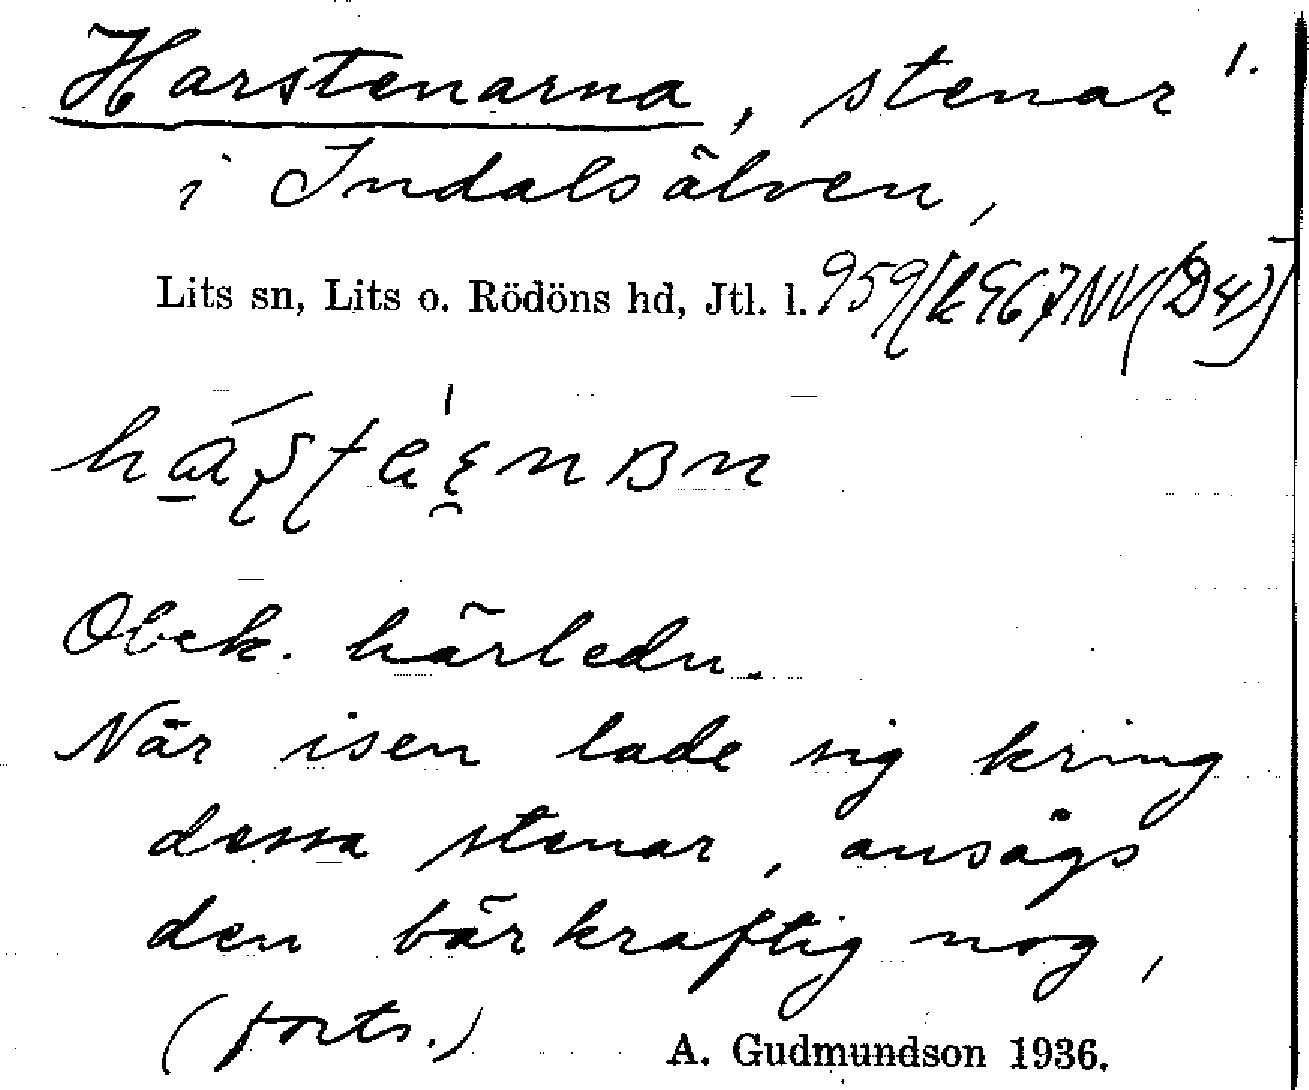 Harstenarna, stenar 1.
i Indalsälven,
Lits sn, Lits o. Rödöns hd, Jtl. l.
Obek. härledn.
När isen lade sig kring
dessa stenar, ansågs
den bärkraftig nog,
(forts.)
A. Gudmundson 1936.